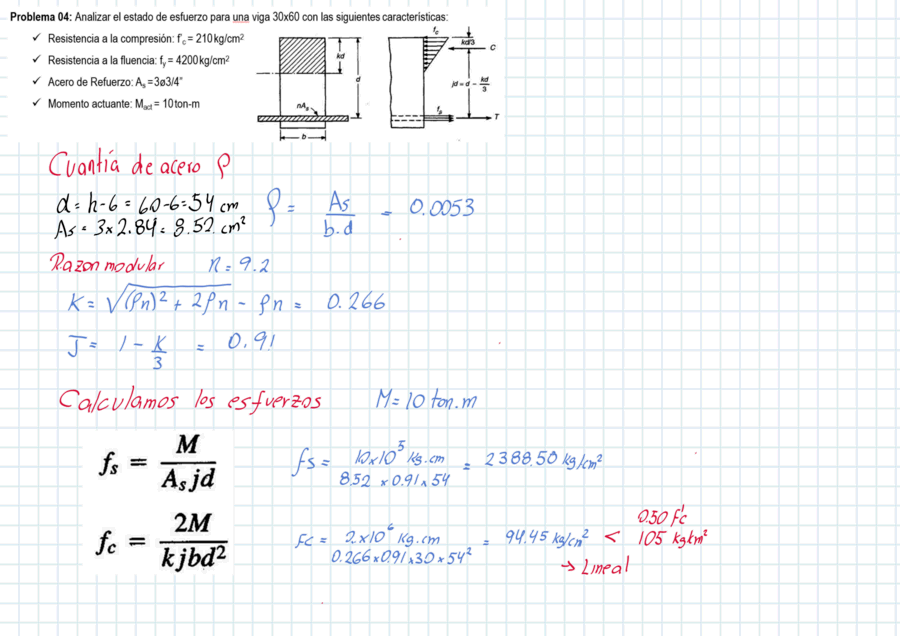 Problema 04: Analizar el estado de esfuerzo para una viga 30x60 con las siguientes características:
✓ Resistencia a la compresión: f'c = 210kg/cm²
✓ Resistencia a la fluencia: fy = 4200kg/cm²
✓ Acero de Refuerzo: As =3ø3/4"
✓ Momento actuante: Mact = 10ton-m
kd
d
nAs
b
fc
kd/3
C
jd = d - kd/3
fs
T
Cuantía de acero ρ
d = h-6 = 60-6=54 cm
As = 3x2.84 = 8.52 cm²
ρ = As/b.d = 0.0053
Razon modular n = 9.2
K = √(ρn)² + 2ρn - ρn = 0.266
J = 1 - K/3 = 0.91
Calculamos los esfuerzos M = 10 ton.m
fs = M/As jd
fs = 10x10⁵ kg.cm / 8.52 x 0.91 x 54 = 2388.50 kg/cm²
fc = 2M/kjbd²
Fc = 2x10⁶ kg.cm / 0.266x0.91x30x54² = 94.45 kg/cm² < 0.50 F'c
105 kg/cm²
→ Lineal